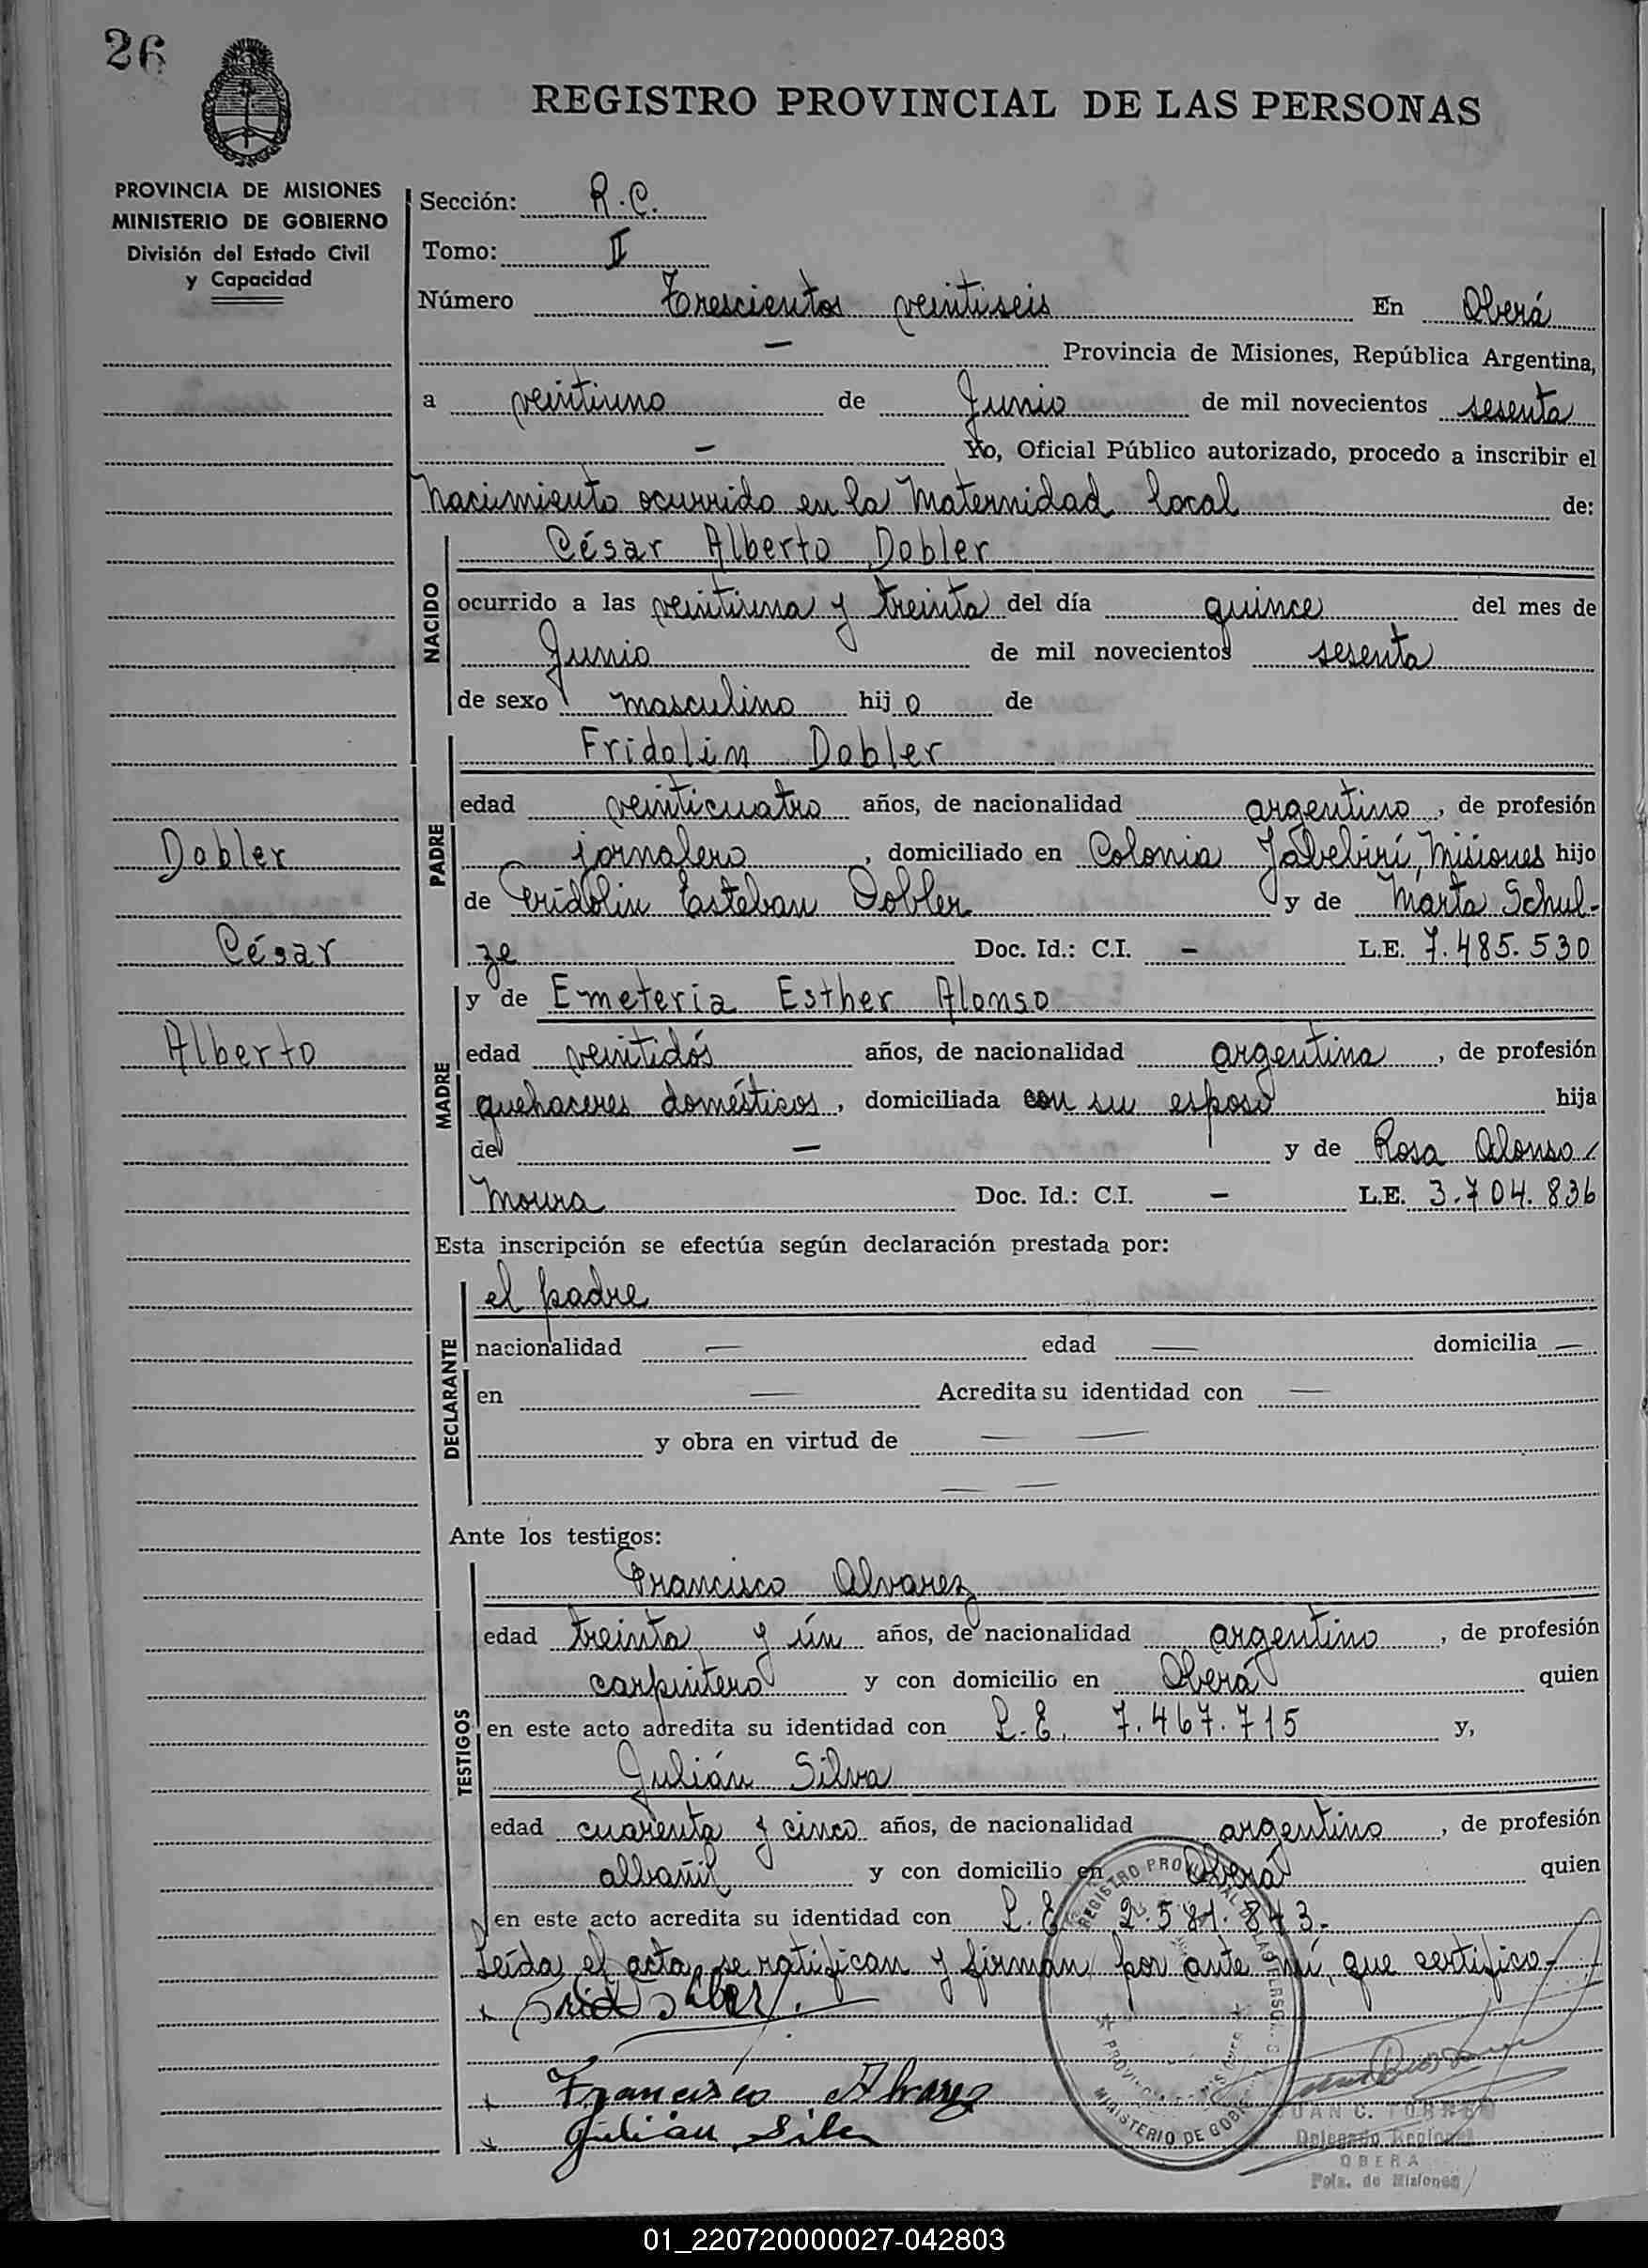 26
REGISTRO PROVINCIAL DE LAS PERSONAS
PROVINCIA DE MISIONES
MINISTERIO DE GOBIERNO
División del Estado Civil
y Capacidad
Sección: R.C.
Tomo: II
Número Trescientos veintiseis En Oberá
— Provincia de Misiones, República Argentina,
a veintiuno de Junio de mil novecientos sesenta
— Yo, Oficial Público autorizado, procedo a inscribir el
Nacimiento ocurrido en la Maternidad local de:
NACIDO
César Alberto Dobler
ocurrido a las veintiuna y treinta del día quince del mes de
Junio de mil novecientos sesenta
de sexo masculino hijo de
PADRE
Fridolin Dobler
edad veinticuatro años, de nacionalidad argentino, de profesión
jornalero, domiciliado en Colonia Yabebirí, Misiones hijo
de Fridolin Esteban Dobler y de Marta Schul-
ze Doc. Id.: C.I. — L.E. 7.485.530
Dobler
César
Alberto
MADRE
y de Emeteria Esther Alonso
edad veintidós años, de nacionalidad argentina, de profesión
quehaceres domésticos, domiciliada con su esposo hija
de — y de Rosa Alonso
Moura Doc. Id.: C.I. — L.E. 3.704.836
Esta inscripción se efectúa según declaración prestada por:
DECLARANTE
el padre
nacionalidad — edad — domicilia —
en — Acredita su identidad con —
y obra en virtud de — —
— —
Ante los testigos:
TESTIGOS
Francisco Alvarez
edad treinta y ún años, de nacionalidad argentino, de profesión
carpintero y con domicilio en Oberá quien
en este acto acredita su identidad con L.E. 7.467.715 y,
Julián Silva
edad cuarenta y cinco años, de nacionalidad argentino, de profesión
albañil y con domicilio en Oberá quien
en este acto acredita su identidad con L.E. 2.581.843.-
Leída el acta, se ratifican y firman por ante mí, que certifico.-
Francisco Alvarez
Julián Silva
REGISTRO PROVINCIAL DE LAS PERSONAS
PROVINCIA DE MISIONES
MINISTERIO DE GOBIERNO
JUAN C. TORRES
Delegado Regional
OBERA
Pcia. de Misiones
01_220720000027-042803